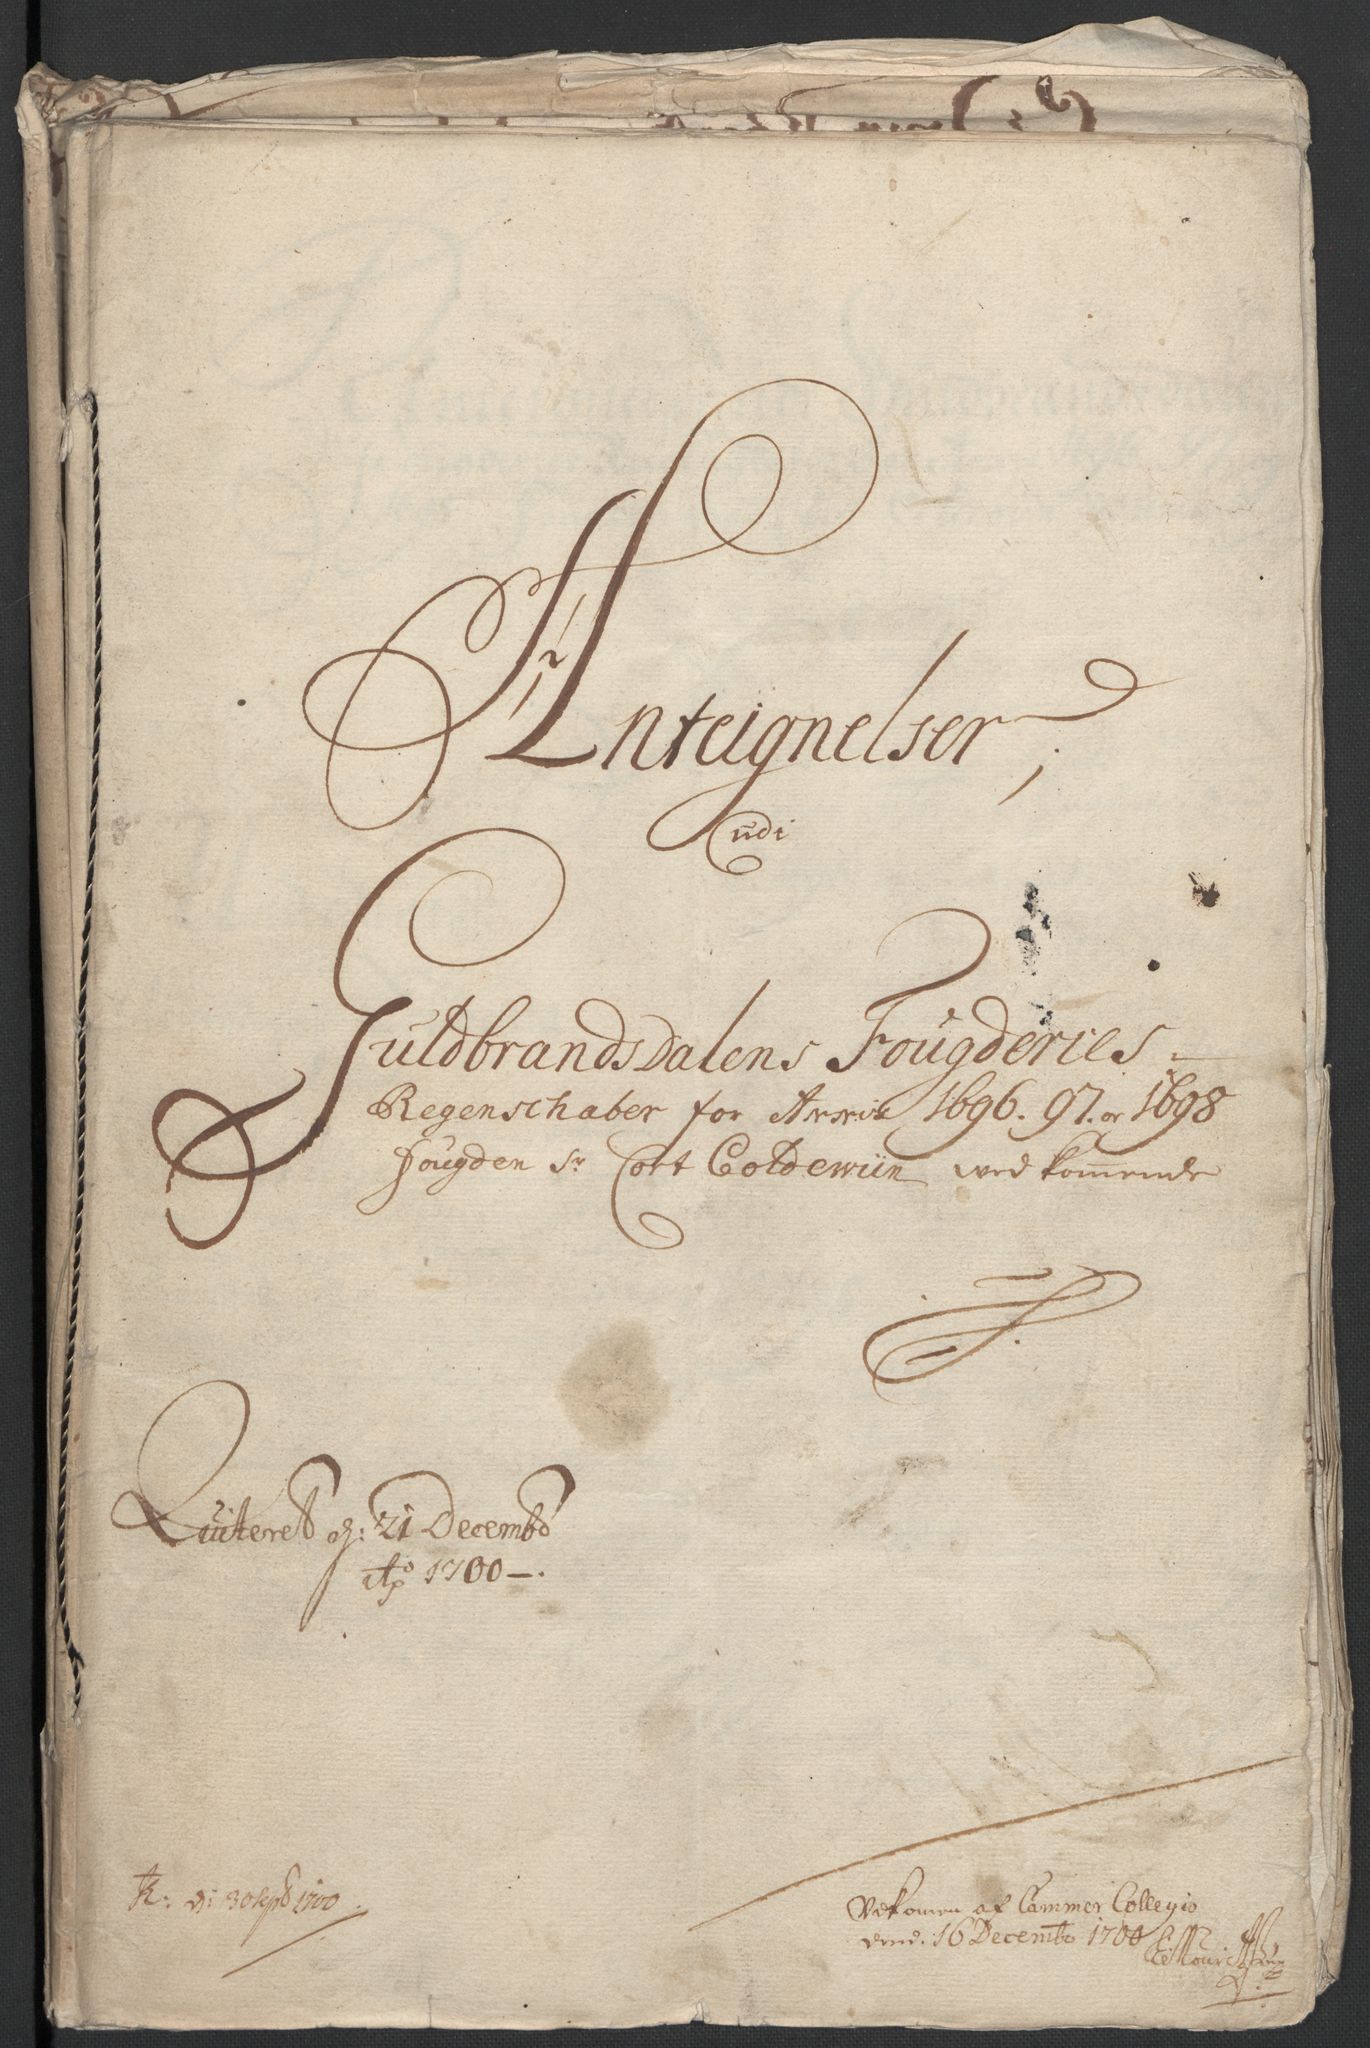 Anteignelser,
udi
Guldbrandsdalens Fougderies
Regenschaber for Aarene 1696. 97. oc 1698
fougden Sr Cort Coldewiin vedkommende
Quiteret d: 21 Decembr
Ao 1700
R: d: 30 Sept 1700
Udkomen af Cammer Collegio
dend. 16 Decembr 1700